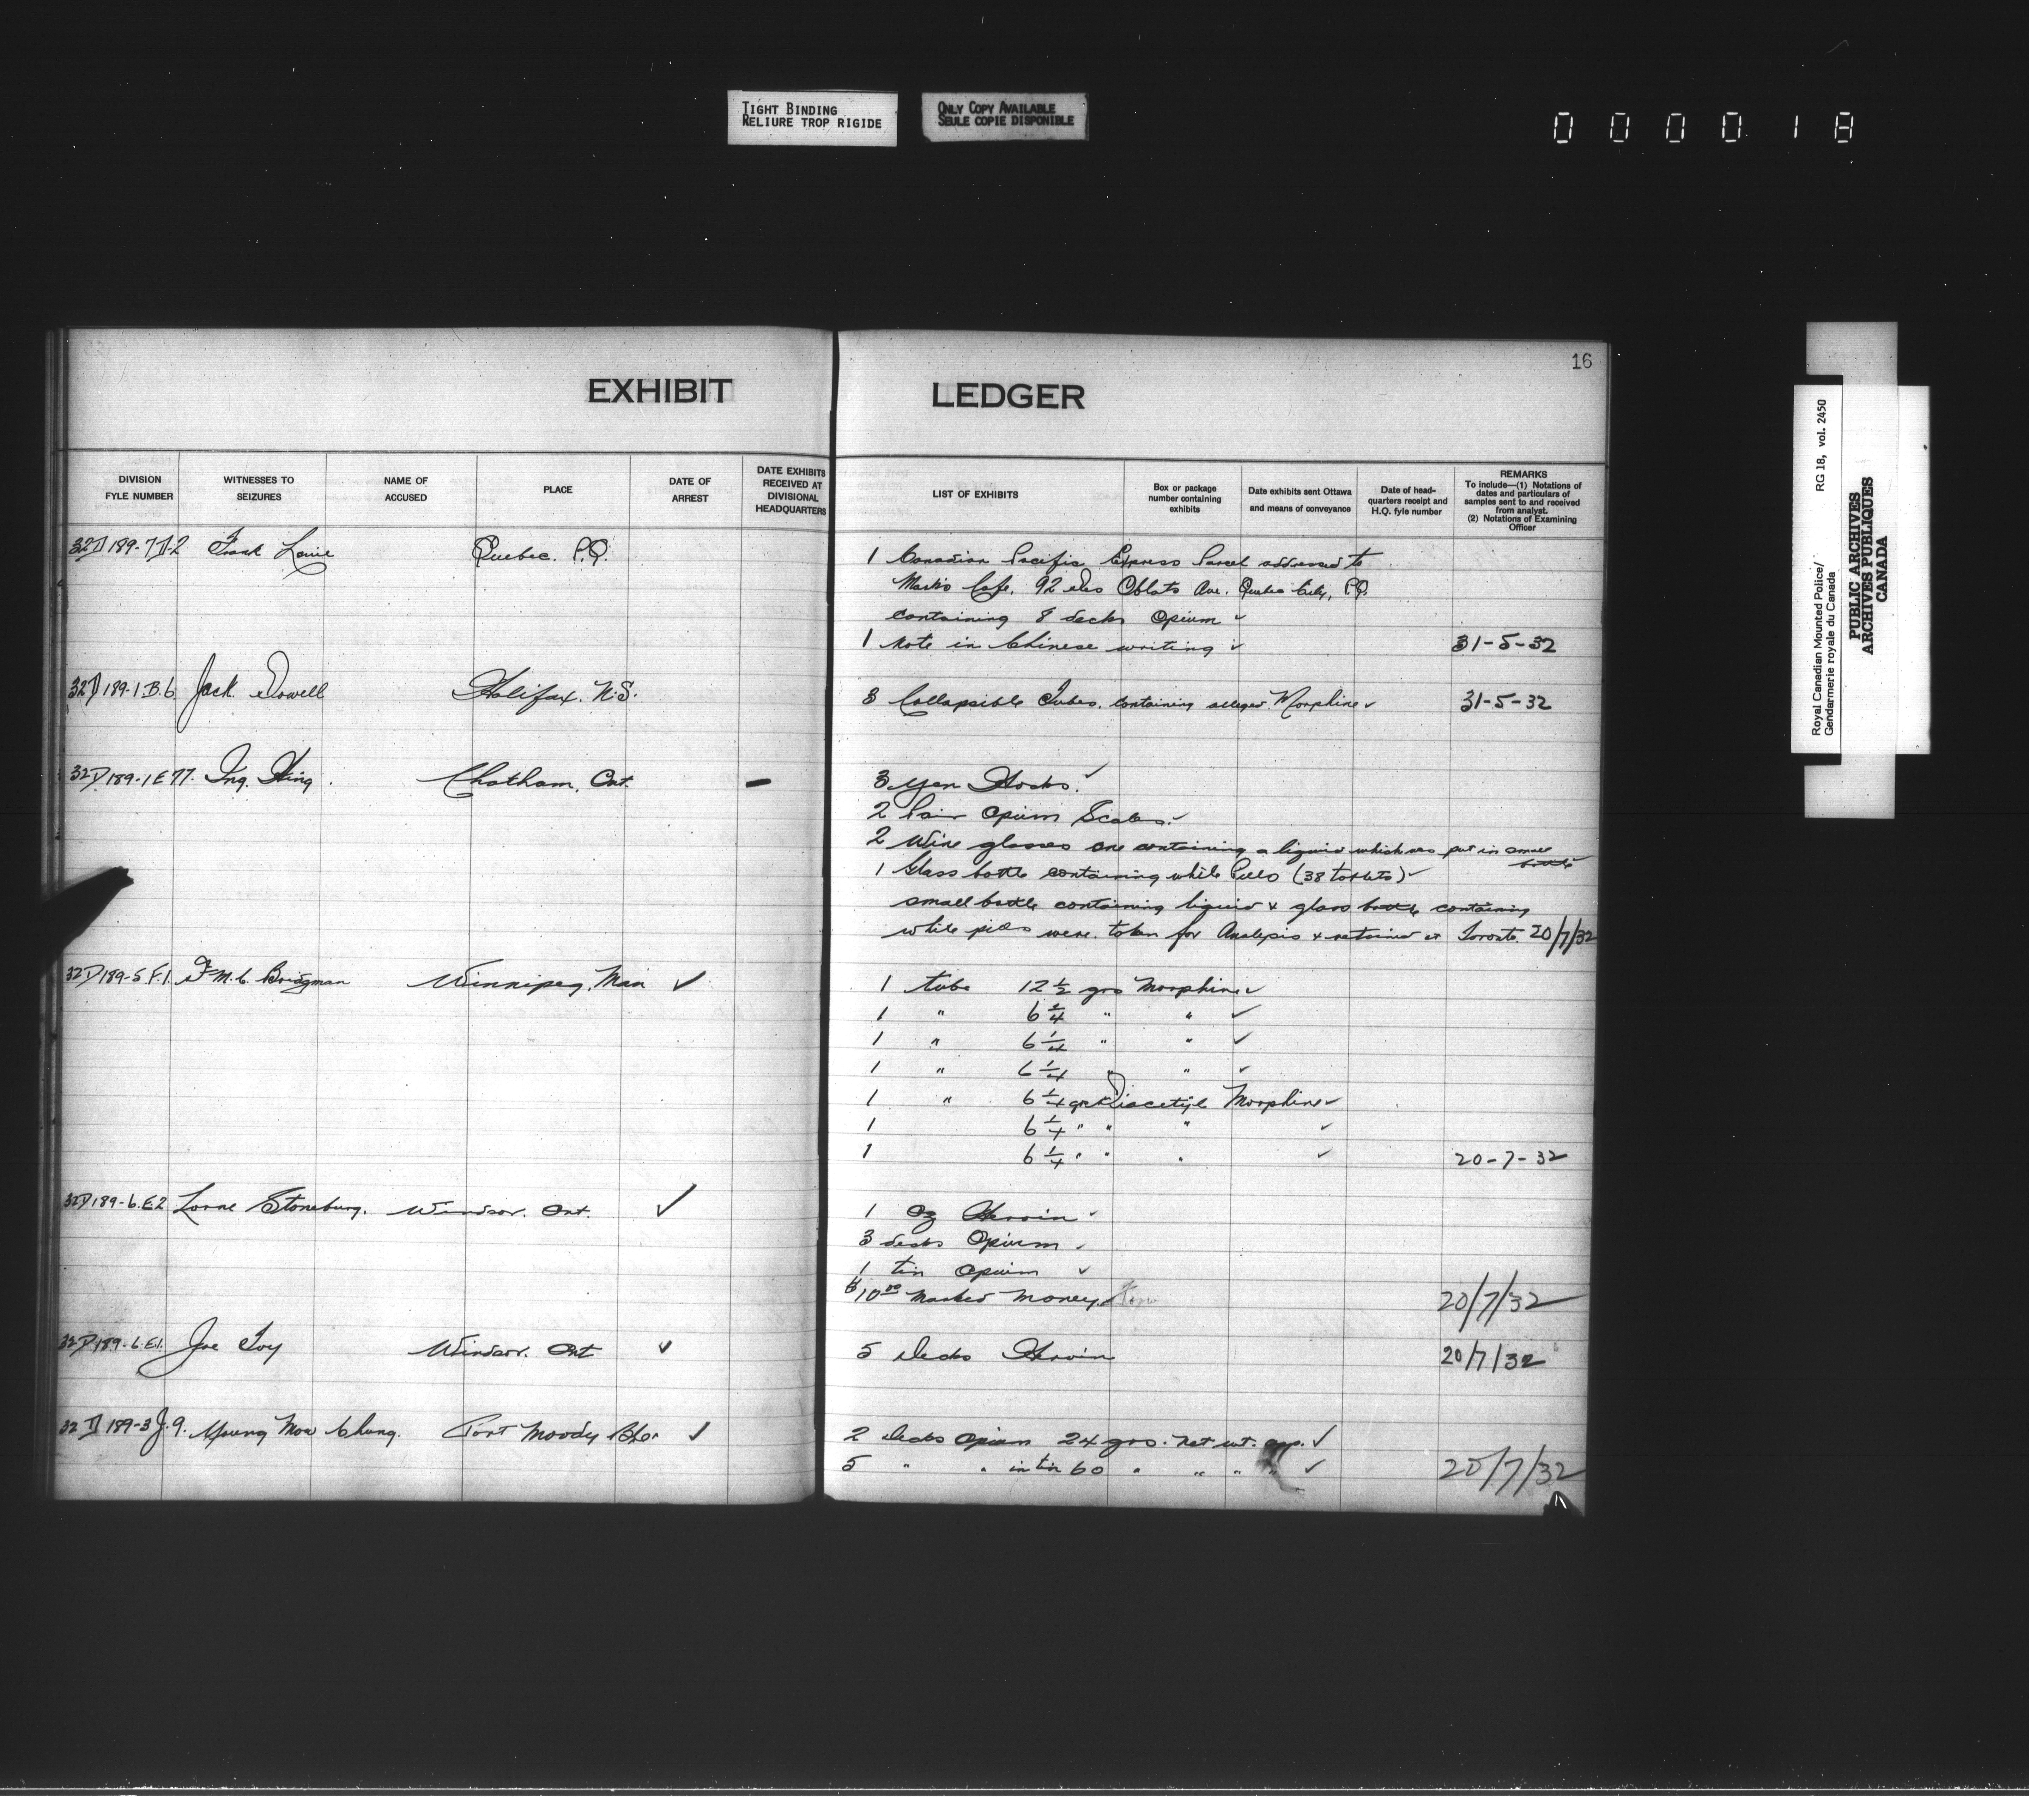 TIGHT BINDING
RELIURE TROP RIGIDE
ONLY COPY AVAILABLE
SEULE COPIE DISPONIBLE
000018
16
EXHIBIT LEDGER
DIVISION FYLE NUMBER
WITNESSES TO SEIZURES
NAME OF ACCUSED
PLACE
DATE OF ARREST
DATE EXHIBITS RECEIVED AT DIVISIONAL HEADQUARTERS
LIST OF EXHIBITS
Box or package number containing exhibits
Date exhibits sent Ottawa and means of conveyance
Date of head-quarters receipt and H.Q. fyle number
REMARKS
To include—(1) Notations of dates and particulars of samples sent to and received from analyst.
(2) Notations of Examining Officer
32D189-7D-2 Frank Louie Quebec. P.Q.
1 Canadian Pacific Express Parcel addressed to
Mark's Cafe, 92 des Oblats Ave. Quebec City, P.Q.
containing 8 decks Opium ✓
1 note in Chinese writing ✓ 31-5-32
32D189-1.B.6 Jack Dowell Halifax. N.S.
3 Collapsible Tubes. containing alleged Morphine ✓ 31-5-32
32D189-1E77. Ing. King. Chatham, Ont. –
3 Yen Hocks. ✓
2 Pair Opium Scales. ✓
2 Wine glasses one containing a liquid which was put in small
bottle
1 Glass bottle containing white Pills (38 tablets) ✓
small bottle containing liquid & glass bottle containing
white pills were taken for Analysis & retained at Toronto. 20/7/32
32D189-5F.1. M.C. Bridgman Winnipeg, Man ✓
1 tube 12 1/2 grs Morphine ✓
1 " 6 " " ✓
1 " 6 1/4 " " ✓
1 " 6 1/4 " " ✓
1 " 6 1/4 grs Diacetyl Morphine ✓
1 6 1/4 " " " ✓
1 6 1/4 " " " ✓ 20-7-32
32D189-6.E2 Lorne Stoneburg. Windsor. Ont. ✓
1 Oz Heroin ✓
3 decks Opium ✓
1 tin Opium ✓
$10.00 Marked Money. 20/7/32
32D189-6.E1. Joe Toy Windsor. Ont ✓
5 Decks Heroin 20/7/32
32D189-3J.9. Young Mow Chung. Port Moody B.C. ✓
2 Decks Opium 24 grs. net wt. app. ✓
5 " " in tin 60 " " " " ✓ 20/7/32
Royal Canadian Mounted Police/ RG 18, vol. 2450
Gendarmerie royale du Canada
PUBLIC ARCHIVES
ARCHIVES PUBLIQUES
CANADA